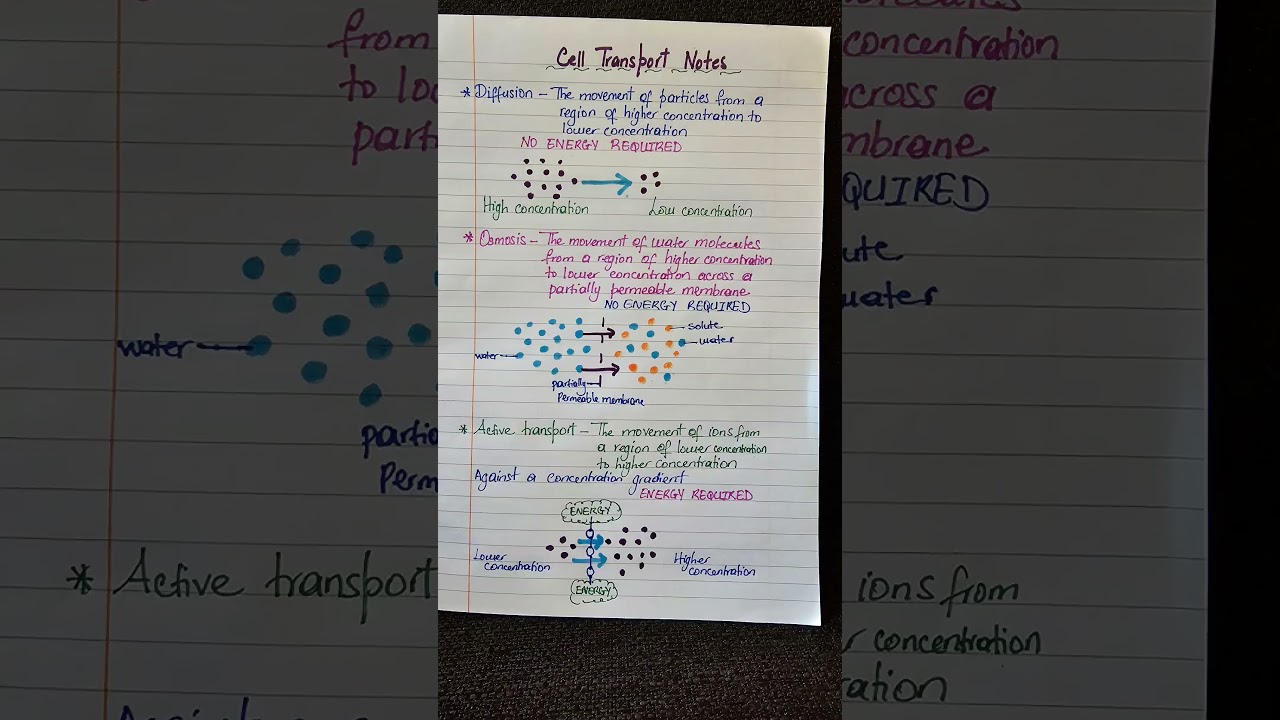 Cell Transport Notes
* Diffusion - The movement of particles from a
region of higher concentration to
lower concentration
NO ENERGY REQUIRED
High concentration
Low concentration
* Osmosis - The movement of water molecules
from a region of higher concentration
to lower concentration across a
partially permeable membrane
NO ENERGY REQUIRED
solute
water
water
partially
Permeable membrane
* Active transport - The movement of ions from
a region of lower concentration
to higher concentration
Against a concentration gradient
ENERGY REQUIRED
ENERGY
Lower
concentration
Higher
concentration
ENERGY
from
to
water
Perm
* Active transport
concentration
across a
mbrane
QUIRED
ute
water
ions from
concentration
ration